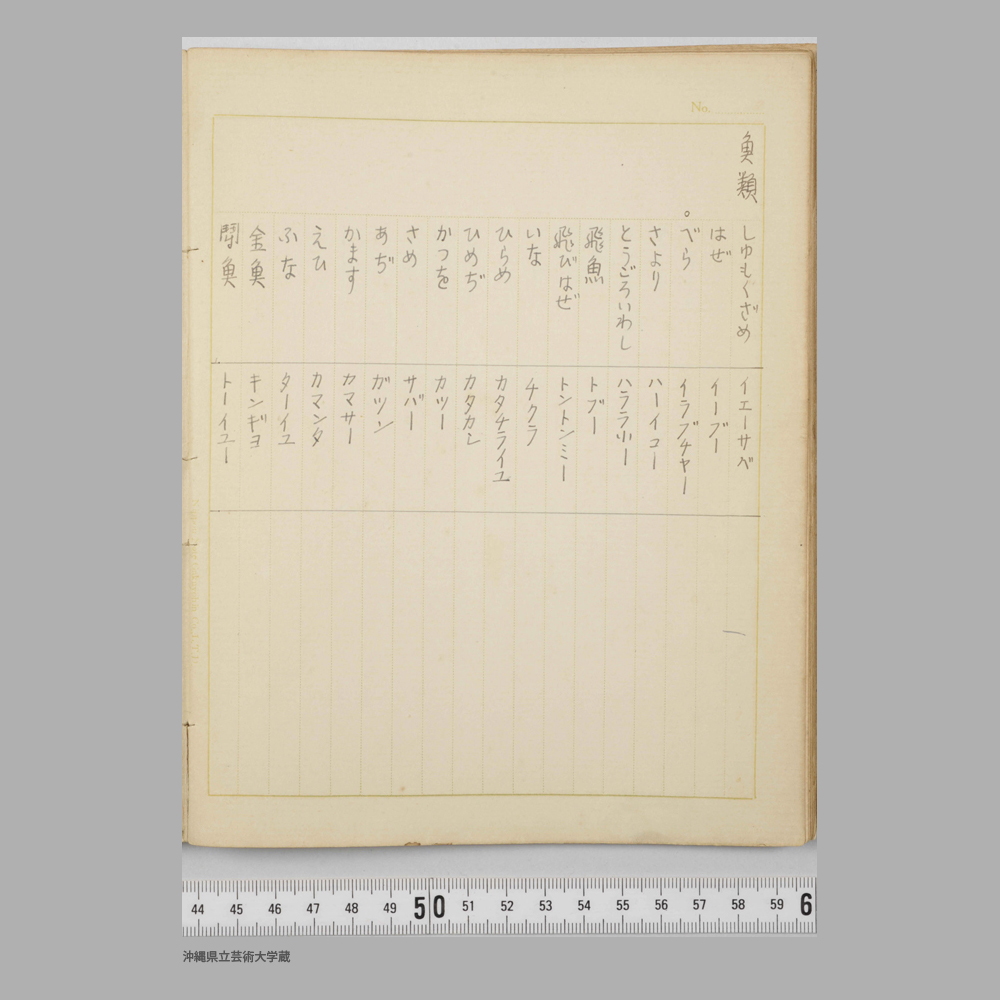 No.
魚類
しゅもくざめ イエーサバ
はぜ イーブー
°べら イラブチャー
さより ハーイユー
とうごろいわし ハララ小ー
飛魚 トブー
飛びはぜ トントンミー
いな チクラ
ひらめ カタチライユ
ひめぢ カタカシ
かつを カツー
さめ サバー
あぢ ガツン
かます カマサー
えひ カマンタ
ふな ターイユ
金魚 キンギヨ
闘魚 トーイユー
44 45 46 47 48 49 50 51 52 53 54 55 56 57 58 59 6
沖縄県立芸術大学蔵